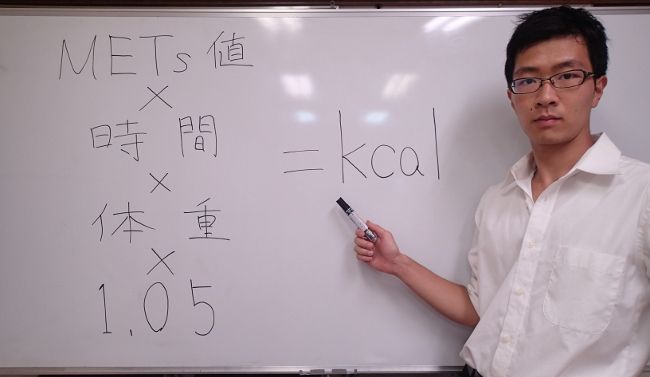 METs値
×
時間
×
体重
×
1.05
=kcal